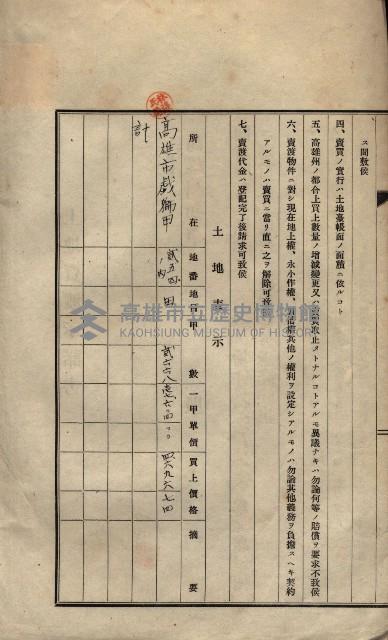 ス間敷候
四、賣買ノ實行ハ土地臺帳面ノ面積ニ依ルコト
五、高雄州ノ都合上買上數量ノ增減變更又ハ賣買取止メトナルコトアルモ異議ナキハ勿論何等ノ賠償ヲ要求不致候
六、賣渡物件ニ對シ現在地上權、永小作權、其他ノ權利ヲ設定シアルモノハ勿論其他義務ヲ負擔スヘキ契約
アルモノハ賣買ニ當リ直ニ之ヲ解除可致候
七、賣渡代金ハ登記完了後請求可致候
土地表示
所在 地番 地目 甲數 一甲單價 買上價格 摘要
高雄市戲獅甲
計
高雄市立歷史博物館
KAOHSIUNG MUSEUM OF HISTORY